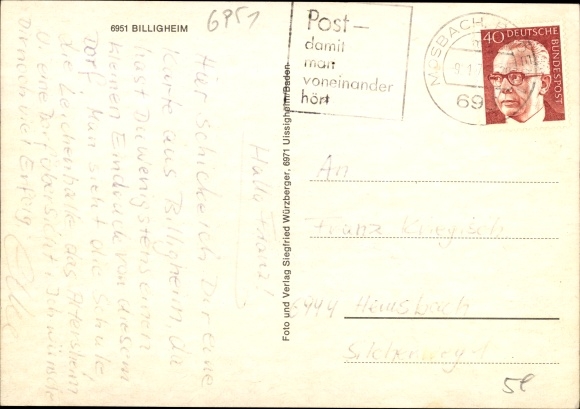 6951 BILLIGHEIM
6951
Hallo Franz!
Hier schicke ich Dir eine
Karte aus Billigheim, da
hast Du wenigstens einen
kleinen Eindruck von diesem
Dorf. Man sieht die Schule,
die Leichenhalle, das Altersheim
u. eine Dorfübersicht. Ich wünsche
Dir noch viel Erfolg
Foto und Verlag Siegfried Würzberger, 6971 Uissigheim/Baden
Post-
damit
man
voneinander
hört
MOSBACH
69
40 DEUTSCHE
BUNDESPOST
An
Franz
6944 Hemsbach
58